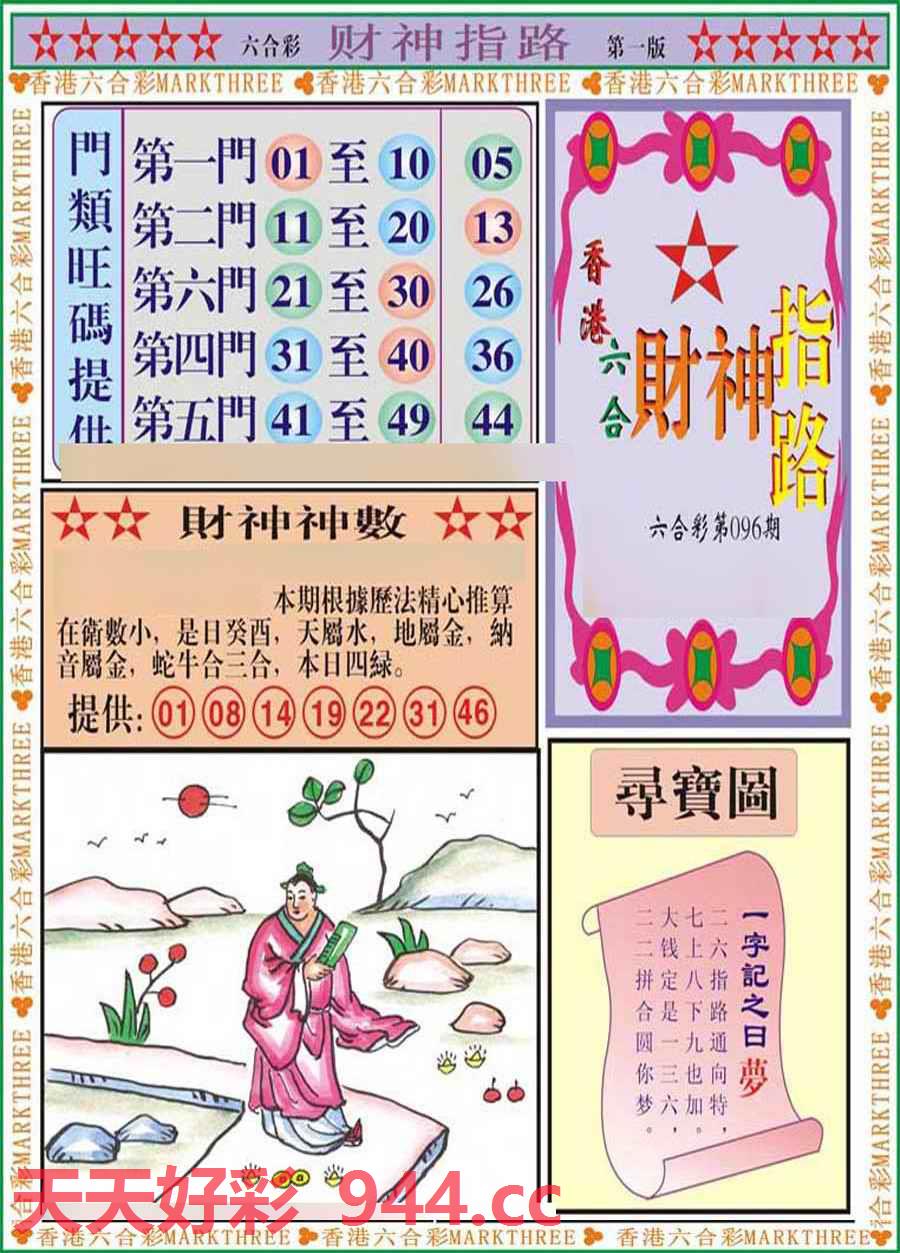 六合彩 财神指路 第一版
香港六合彩MARKTHREE 香港六合彩MARKTHREE 香港六合彩MARKTHREE
門類旺碼提供
第一門 01 至 10 05
第二門 11 至 20 13
第六門 21 至 30 26
第四門 31 至 40 36
第五門 41 至 49 44
香港六合
財神指路
六合彩第096期
財神神數
本期根據歷法精心推算
在衛數小，是日癸酉，天屬水，地屬金，納
音屬金，蛇牛合三合，本日四緑。
提供: 01 08 14 19 22 31 46
尋寶圖
一字記之曰夢
二六指路通向特，
七上八下九也加。
大钱定是一三六，
二二拼合圆你梦。
天天好彩 944.cc
香港六合彩MARKTHREE 香港六合彩MARKTHREE 香港六合彩MARKTHREE